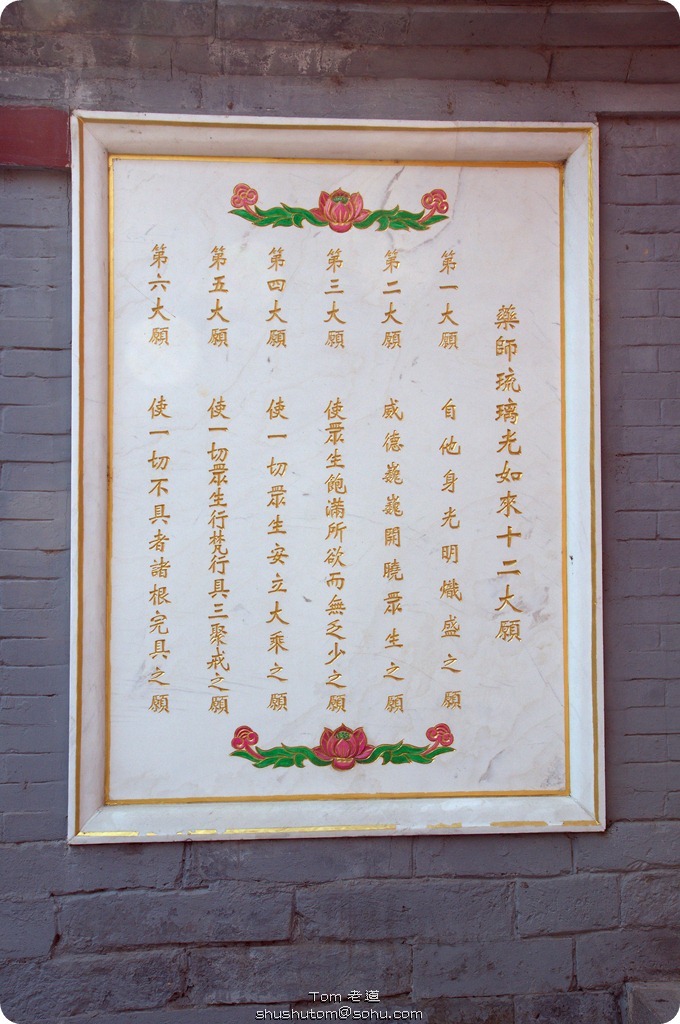 藥師琉璃光如來十二大願
第一大願 自他身光明熾盛之願
第二大願 威德巍巍開曉眾生之願
第三大願 使眾生飽滿所欲而無乏少之願
第四大願 使一切眾生安立大乘之願
第五大願 使一切眾生行梵行具三聚戒之願
第六大願 使一切不具者諸根完具之願
Tom 老道
shushutom@sohu.com